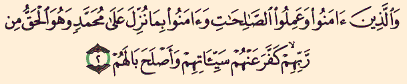 وَٱلَّذِينَ ءَامَنُوا۟ وَعَمِلُوا۟ ٱلصَّٰلِحَٰتِ وَءَامَنُوا۟ بِمَا نُزِّلَ عَلَىٰ مُحَمَّدٍ وَهُوَ ٱلْحَقُّ مِن
رَّبِّهِمْ ۙ كَفَّرَ عَنْهُمْ سَيِّـَٔاتِهِمْ وَأَصْلَحَ بَالَهُمْ ٢